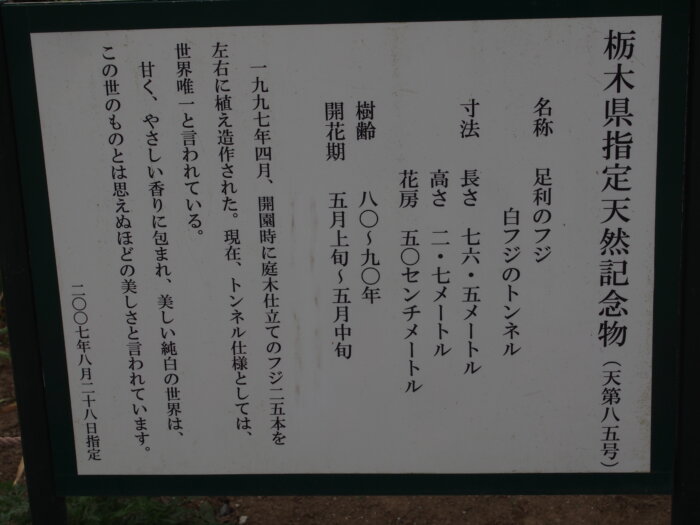 栃木県指定天然記念物（天第八五号）
名称　足利のフジ
白フジのトンネル
寸法　長さ　七六・五メートル
高さ　二・七メートル
花房　五〇センチメートル
樹齢　八〇～九〇年
開花期　五月上旬～五月中旬
一九九七年四月、開園時に庭木仕立てのフジ二五本を
左右に植え造作された。現在、トンネル仕様としては、
世界唯一と言われている。
甘く、やさしい香りに包まれ、美しい純白の世界は、
この世のものとは思えぬほどの美しさと言われています。
二〇〇七年八月二十八日指定